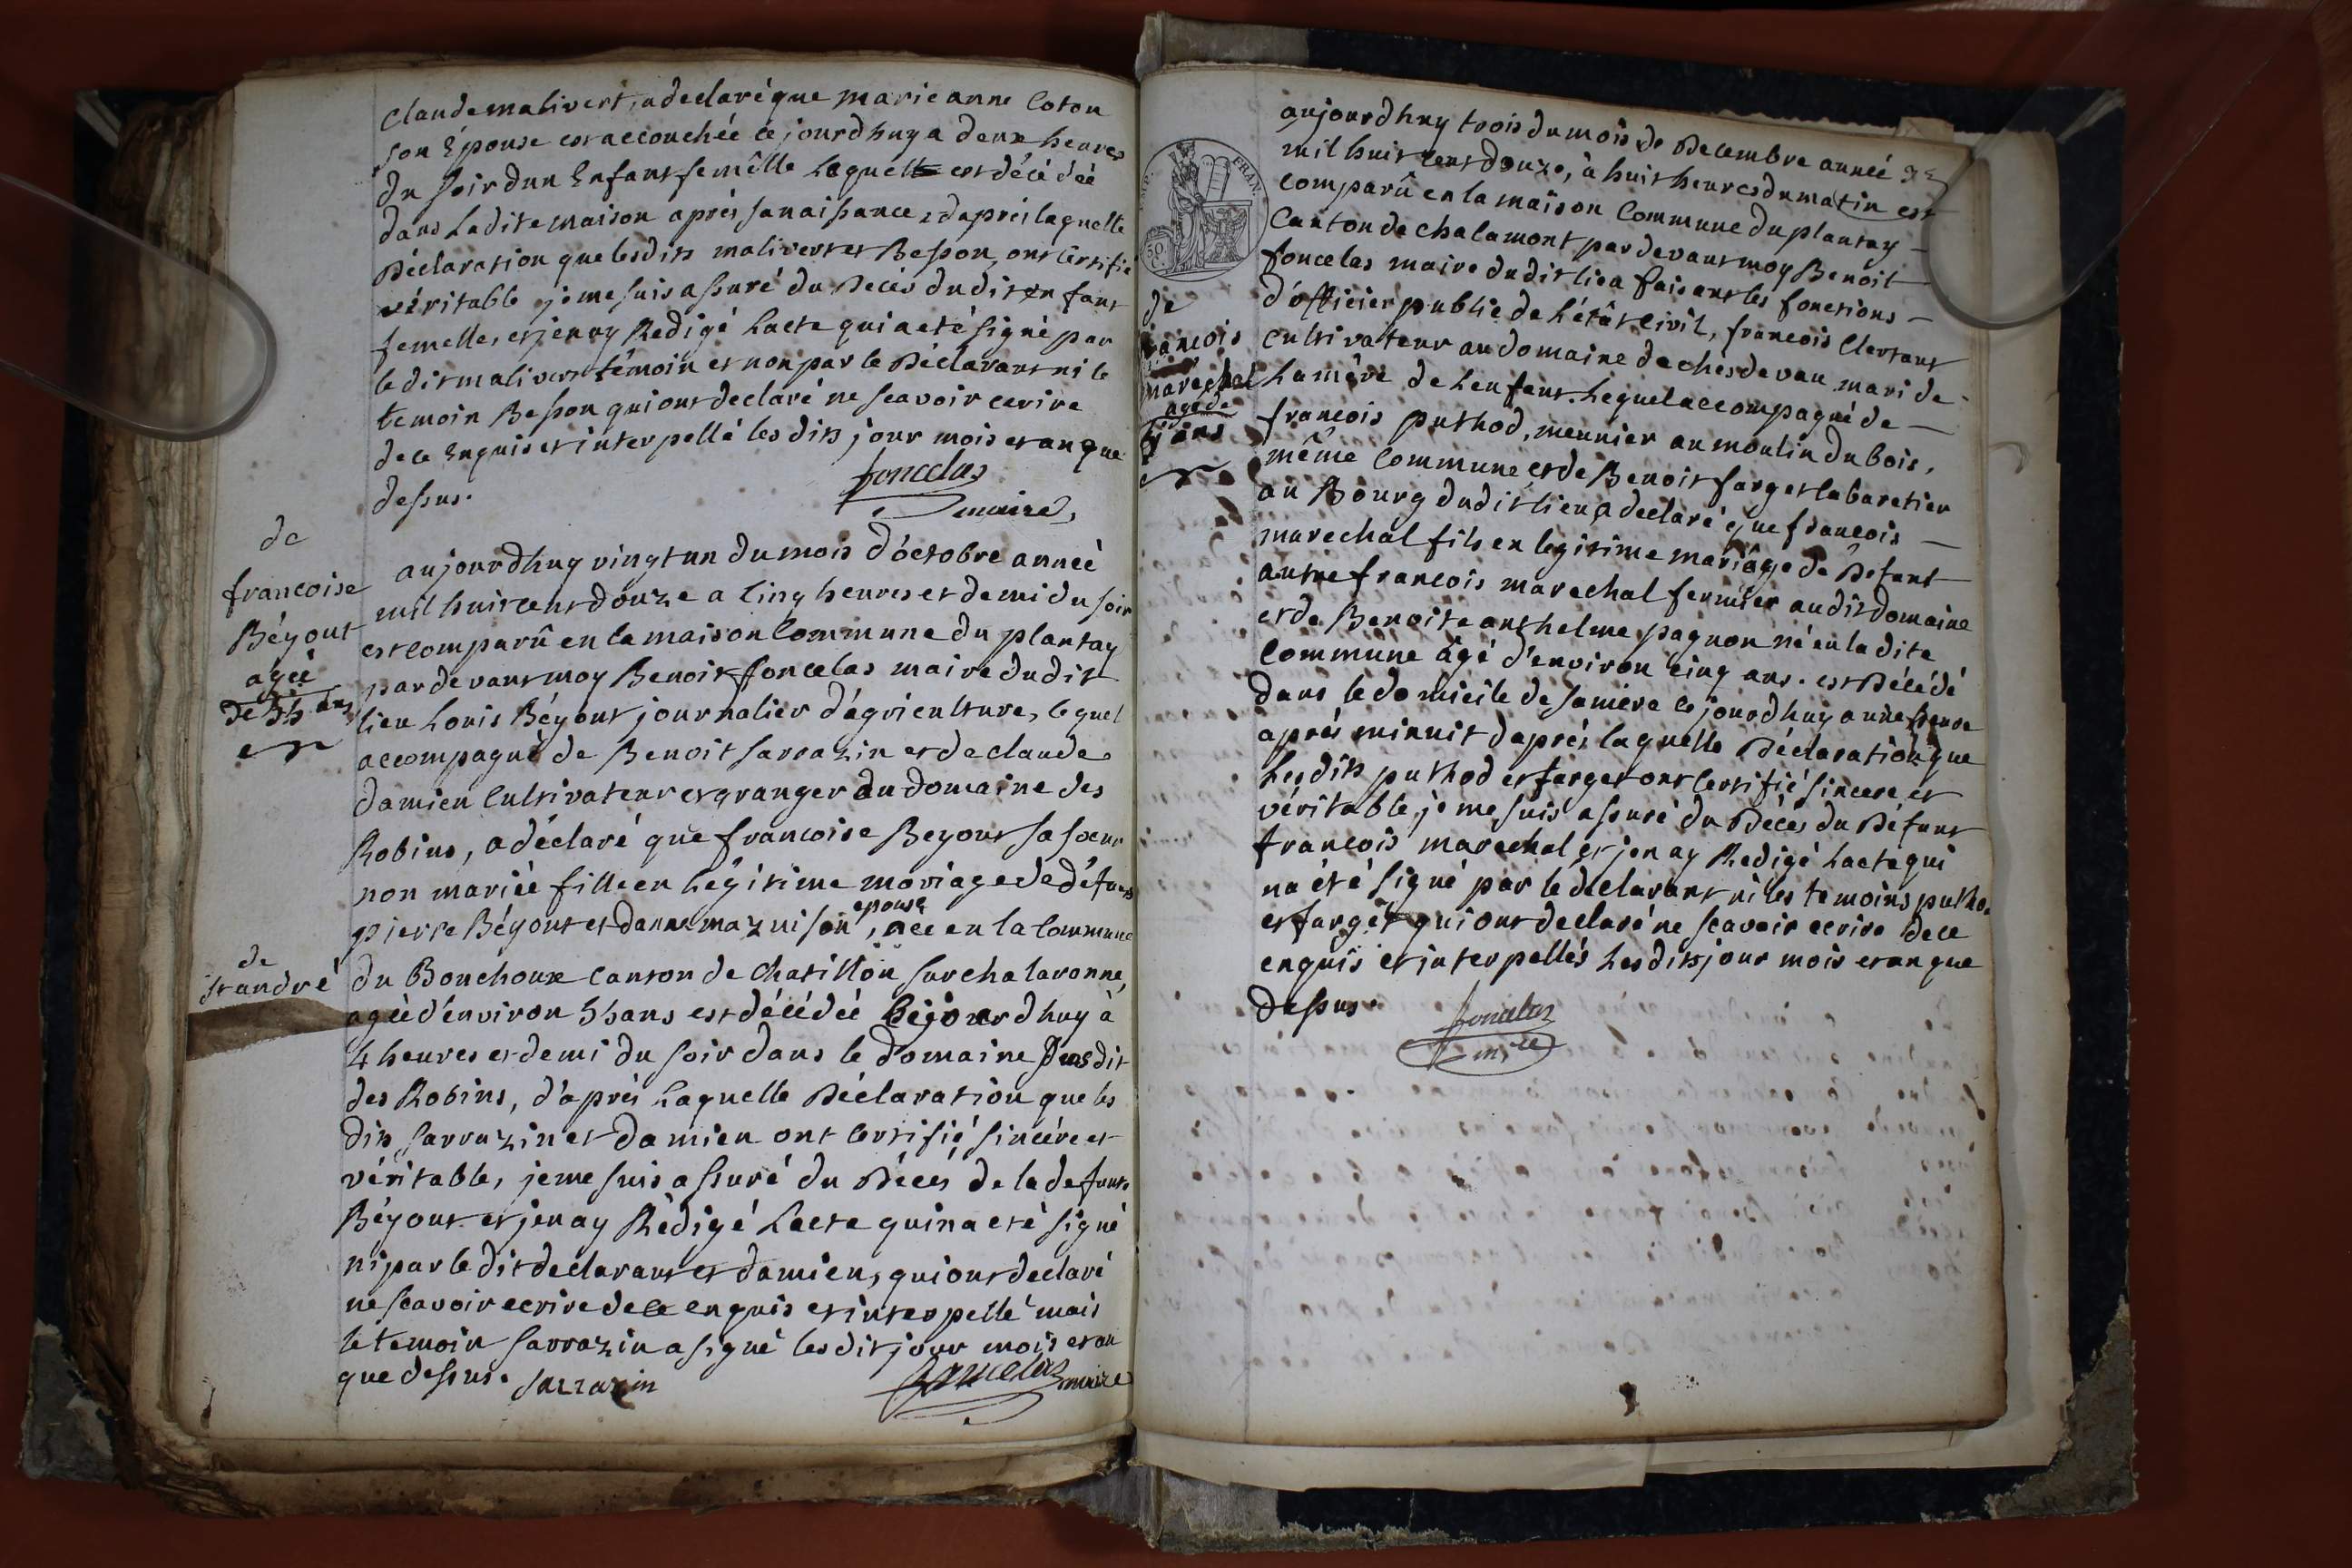 claude malivert, a declaré que marie anne Coton
son Epouse est accouchée ce jourdhuy a deux heures
du soir dun Enfant femêlle laquelle est décédéé
dans ladite maison aprés sa naissance, daprés laquelle
Déclaration que lesdits malivert et Besson, ont Certifié
véritable je me suis assuré du Decés dudit enfant
femelle, et jen ay Redigé Lacte qui a eté signé par
ledit malivert témoin et non par le Déclarant ni le
temoin Besson qui ont declaré ne scavoir ecrire
de ce Enquis et interpellé les dits jour mois et an que
dessus.
foncelas
maire
de
francoise
Béyout
ageé
de 55 ans
aujourdhuy vingt un du mois d'óctobre anneé
mil huit cent douze a Cinq heures et demi du soir
est comparû en la maison Commune du plantay
pardevant moy Benoit foncelas maire dudit
lieu Louis Béyout journalier d'ágriculture, lequel
accompagné de Benoit sarrazin et de claude
damien Cultivateur et granger au domaine des
Robins, a déclaré que francoise Beyout sa soeur
non mariéé fille en Légitime mariage de défunt
epouse
pierre Béyout et danne mazuison, néé en la Commune
de
st andré
du Bouchoux canton de chatillon sur chalaronne,
ageé d'énviron 55 ans est décédéé Cejourdhuy à
4 heures et demi du soir dans le domaine susdit
des Robins, d'áprés Laquelle Déclaration que les
dits sarrazin et damien ont Certifié sincére et
véritable, je me suis assuré du Décés de la defunte
Béyout et jen ay Rédigé Lacte qui na eté signé
ni par ledit declarant et damien, qui ont declaré
ne scavoir ecrire de ce enquis et interpellé mais
le temoin sarrazin a signé les dit jour mois et an
que dessus. sarrazin
foncelas maire
FRAN.
50
de
francois
marechal
agé de
5 ans
aujourdhuy trois du mois de Decembre anneé
mil huit cent douze, à huit heures du matin est
comparû en la maison Commune du plantay
Canton de chalamont pardevant moy Benoit
foncelas maire dudit lieu faisant les fonctions
d'officier public de L'étât Civil, francois Clertant
Cultivateur au domaine de chésdevau mari de
La mére de Lenfant. Lequel accompagné de
francois puthod, meunier au moulin du bois,
même Commune, et de Benoit farget Cabaretier
au Bourg dudit lieu, a declaré que francois
marechal fils en legitime mariâge de Defunt
autre francois marechal fermier audit domaine
et de Benoite anthelme pagnon né en la dite
Commune âgé d'environ cinq ans. est Décédé
dans le domicile de sa mére ce jourdhuy a une heure
aprés minuit daprés laquelle Déclaration que
Lesdits puthod et farget ont Certifié sincere et
véritable, je me suis assuré du Décés du Défunt
francois marechal et jen ay Redigé Lacte qui
na été signé par le déclarant ni les temoins putho.
et farget qui ont declaré ne scavoir ecrire de ce
enquis et interpellés Les dits jour mois et an que
dessus.
foncelas
mire